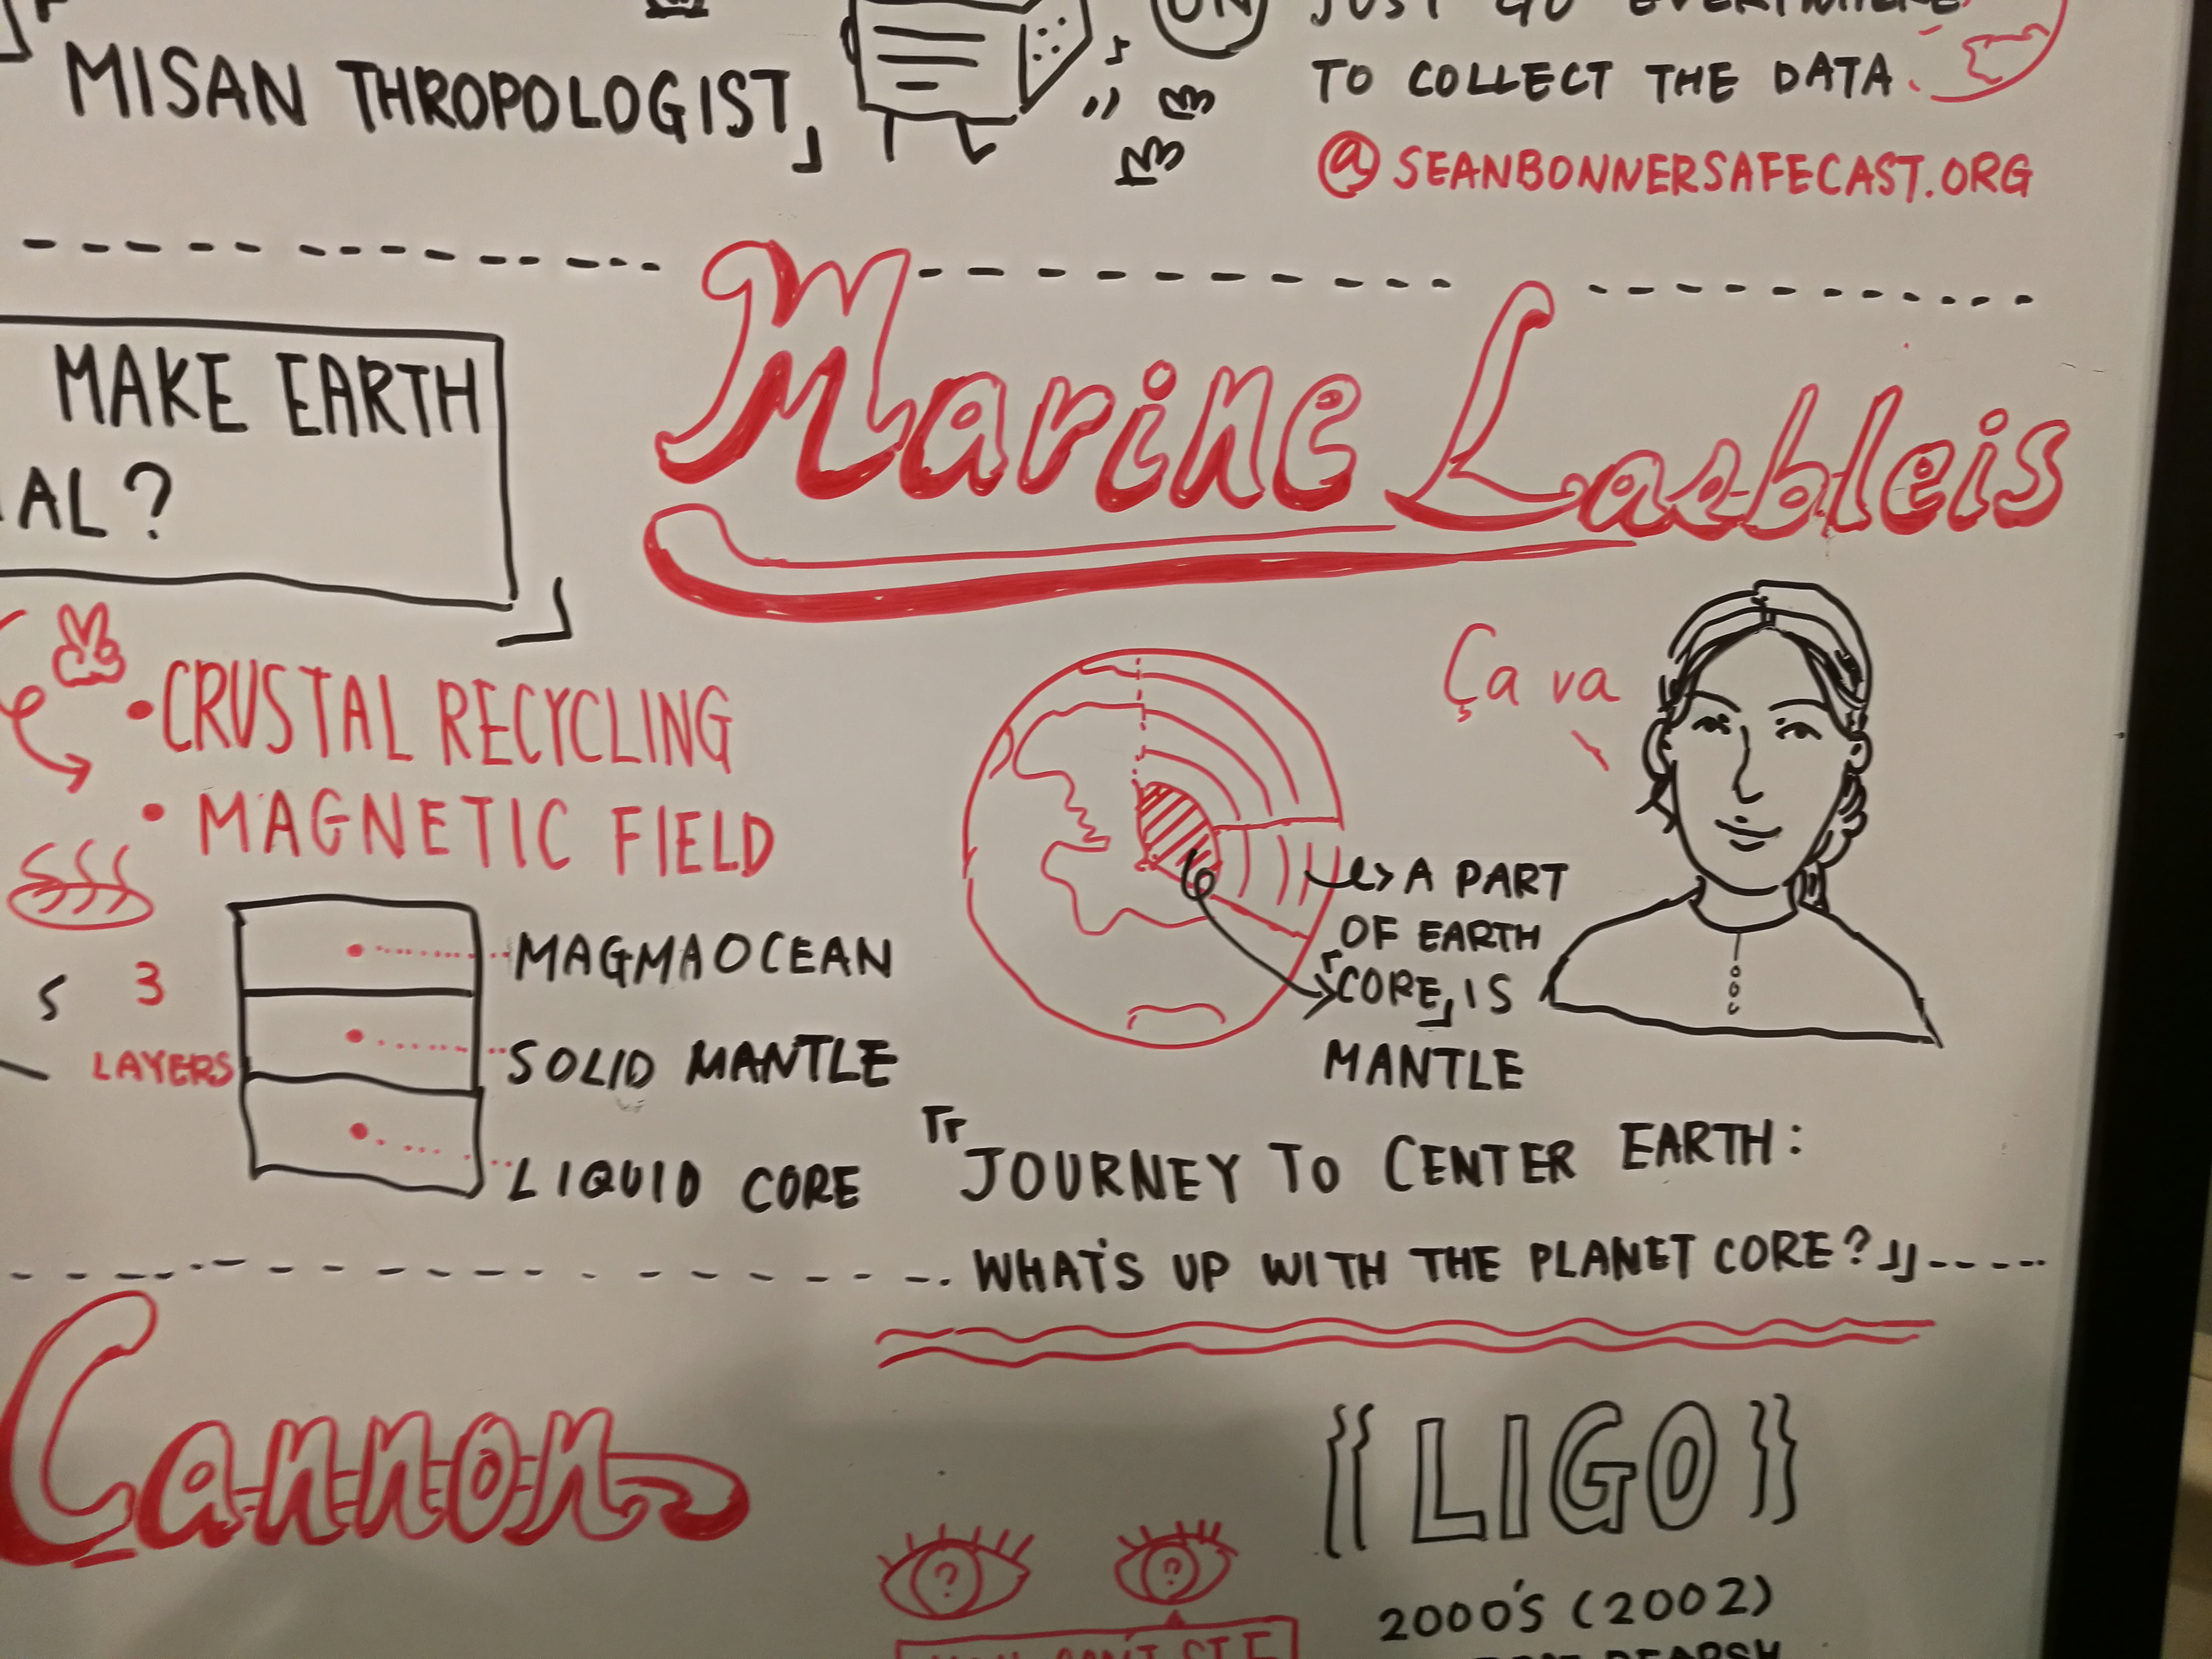 JUST GO EVERYWHERE
TO COLLECT THE DATA
@SEANBONNERSAFECAST.ORG
MISAN THROPOLOGIST」
ON
Marine Laebleis
MAKE EARTH
AL?
」
Ça va
•CRUSTAL RECYCLING
•MAGNETIC FIELD
S 3
LAYERS
MAGMAOCEAN
SOLID MANTLE
LIQUID CORE
A PART
OF EARTH
「CORE」IS
MANTLE
『JOURNEY TO CENTER EARTH:
WHAT'S UP WITH THE PLANET CORE?』
Cannon
{{ LIGO }}
? ?
2000'S (2002)